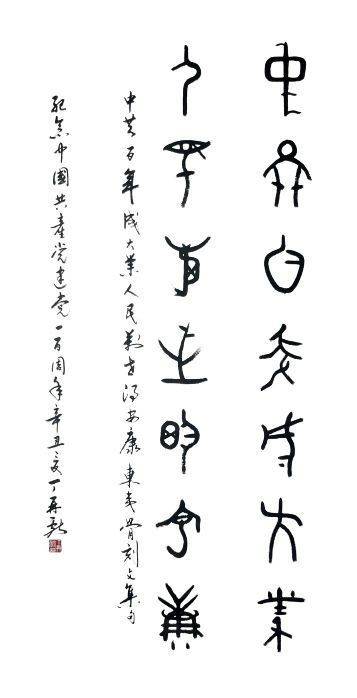 中共百年成大業
人民萬世得安康
中共百年成大業人民萬世得安康 東夷骨刻文集句
紀念中國共產党建党一百周年辛丑夏丁再献